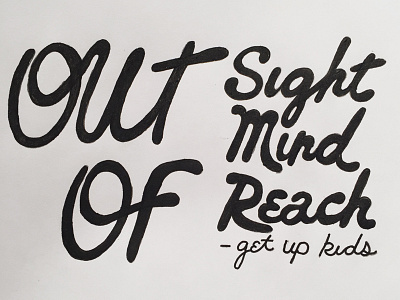 OUT
OF
Sight
Mind
Reach
- get up kids